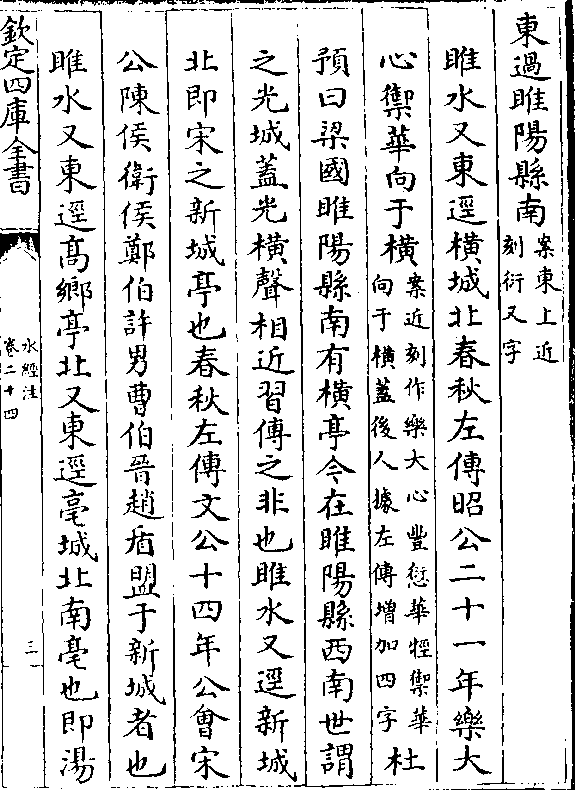 東過睢陽縣南案東上近刻衍又字
睢水又東逕橫城北春秋左傳昭公二十一年樂大
心禦華向于橫案近刻作樂大心豐愆華牼禦華向于橫蓋後人據左傳增加四字杜
預曰梁國睢陽縣南有橫亭今在睢陽縣西南世謂
之光城蓋光橫聲相近習傳之非也睢水又逕新城
北即宋之新城亭也春秋左傳文公十四年公會宋
公陳侯衛侯鄭伯許男曹伯晉趙盾盟于新城者也
睢水又東逕高鄉亭北又東逕亳城北南亳也即湯
欽定四庫全書
水經注
卷二十四
三